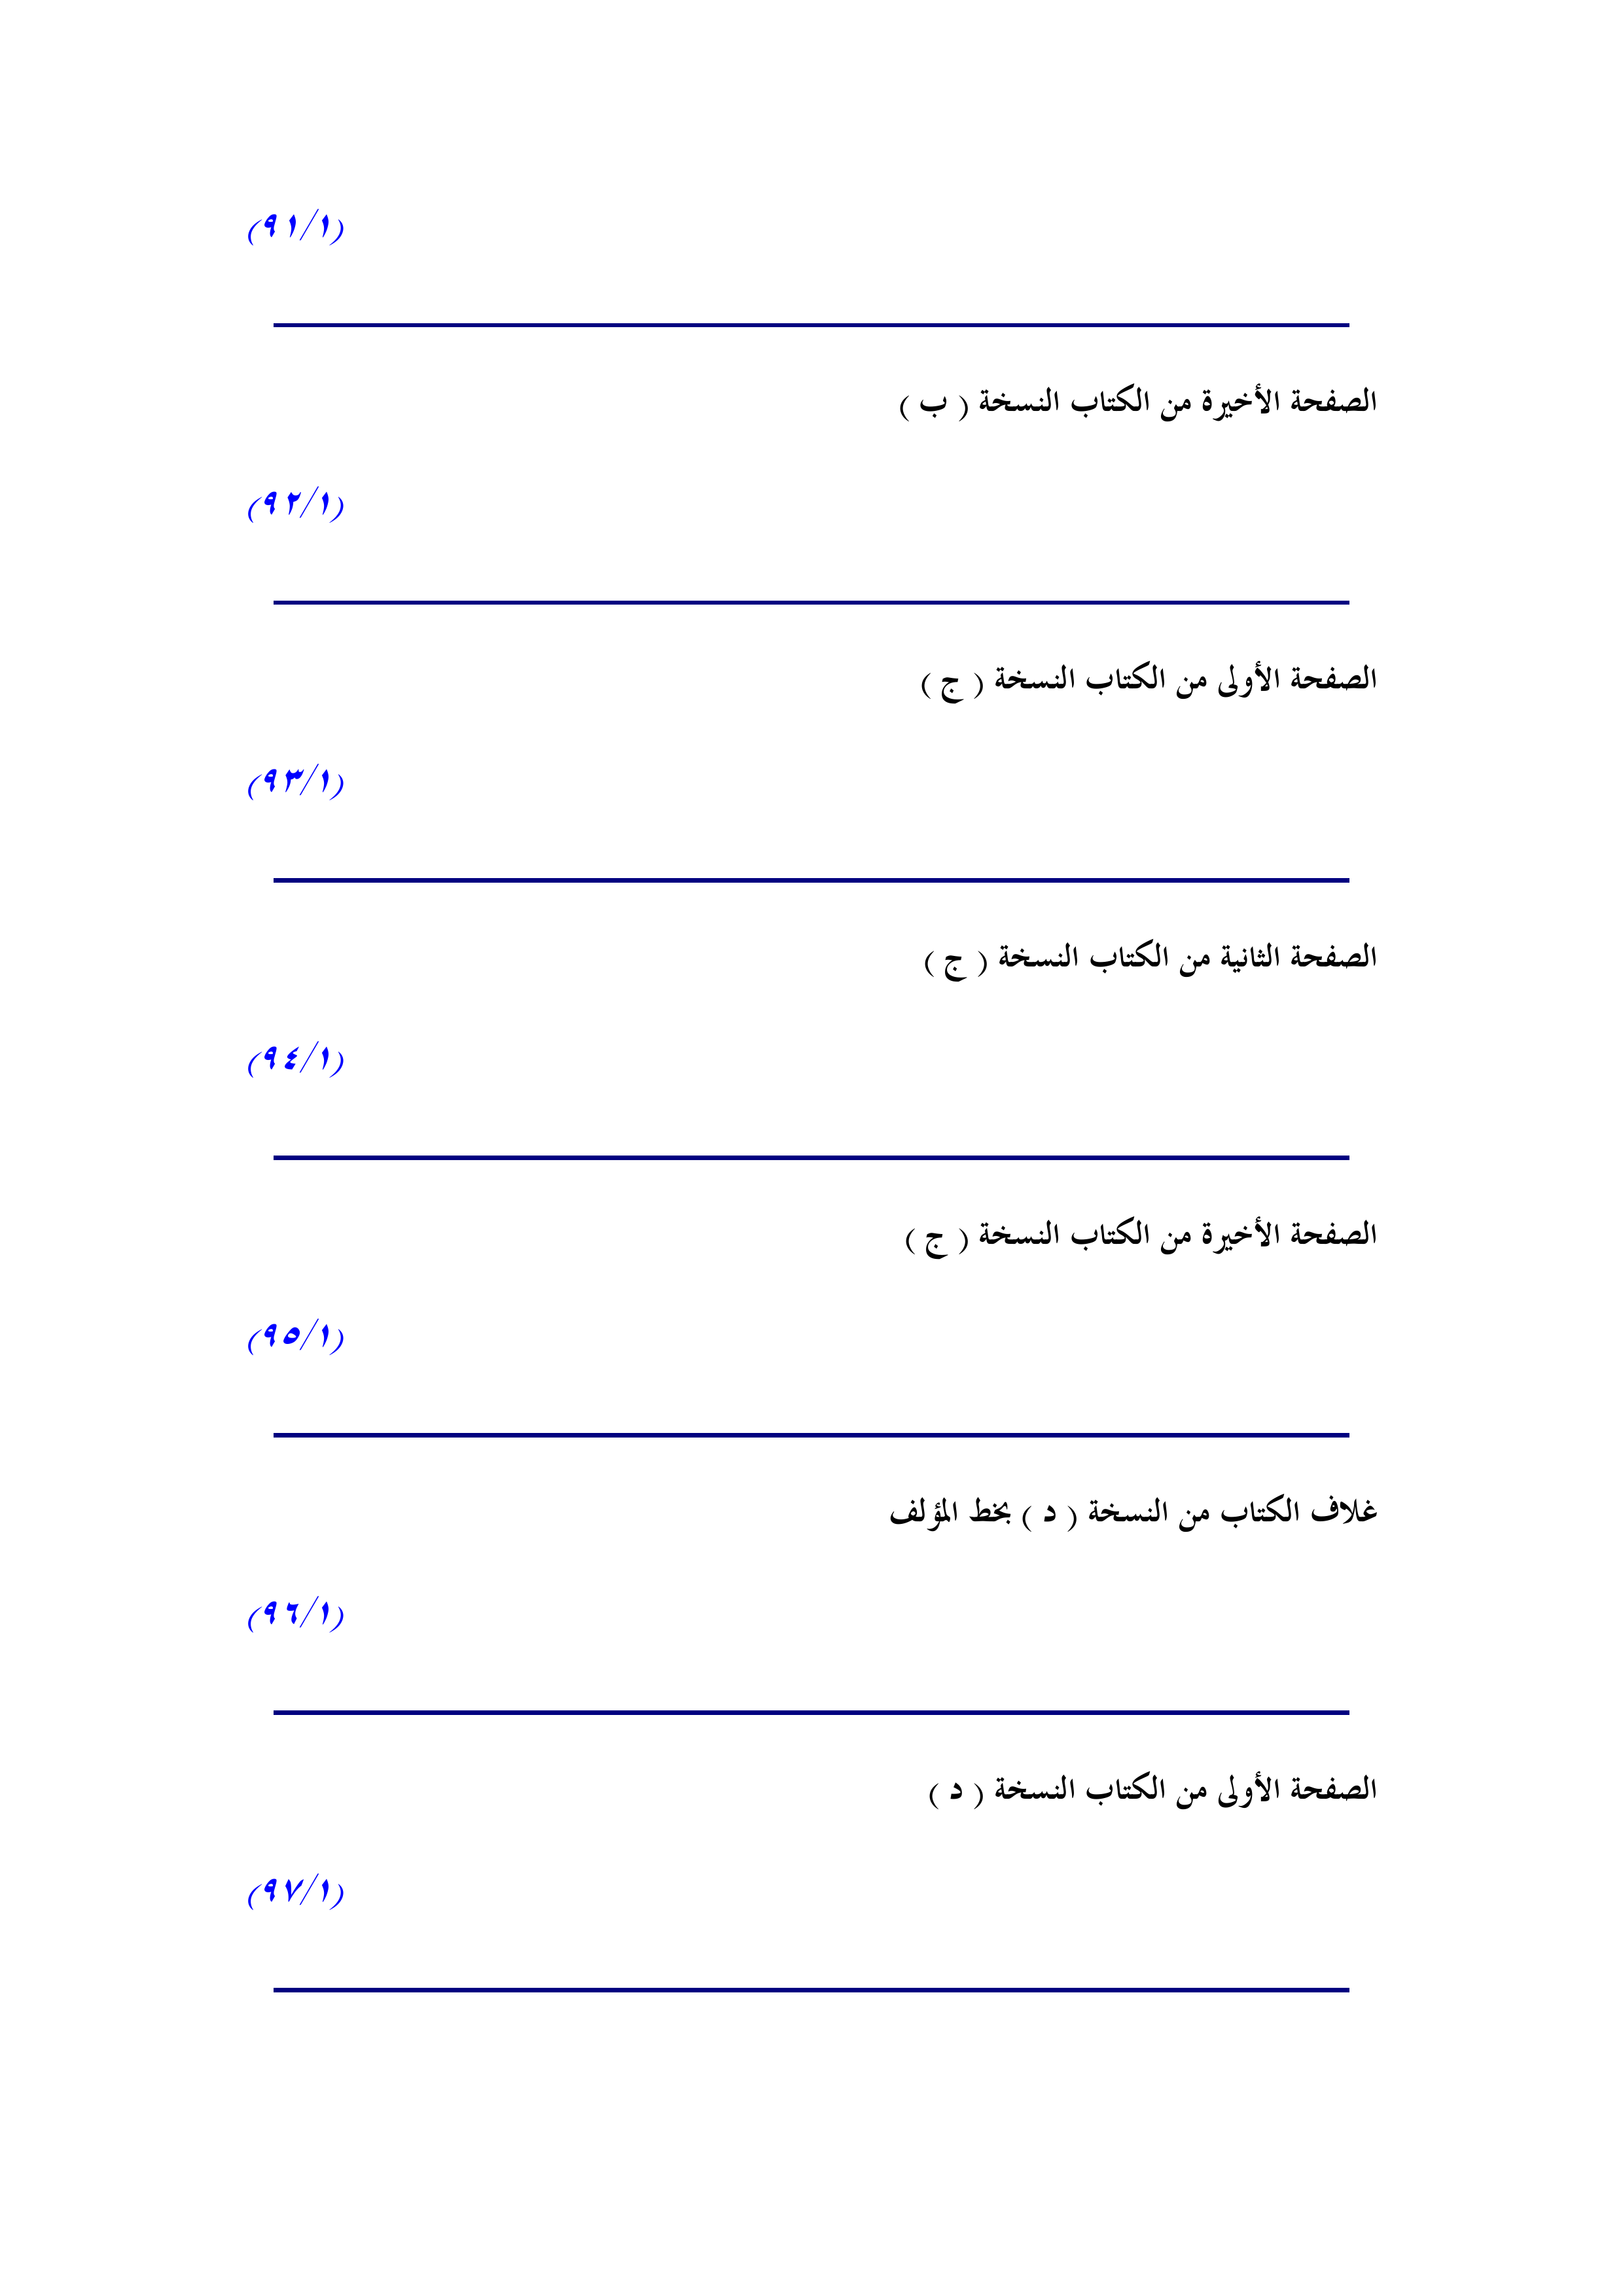 (٩١/١)
الصفحة الأخيرة من الكتاب النسخة ( ب )
(٩٢/١)
الصفحة الأولى من الكتاب النسخة ( ج )
(٩٣/١)
الصفحة الثانية من الكتاب النسخة ( ج )
(٩٤/١)
الصفحة الأخيرة من الكتاب النسخة ( ج )
(٩٥/١)
غلاف الكتاب من النسخة ( د ) بخط المؤلف
(٩٦/١)
الصفحة الأولى من الكتاب النسخة ( د )
(٩٧/١)